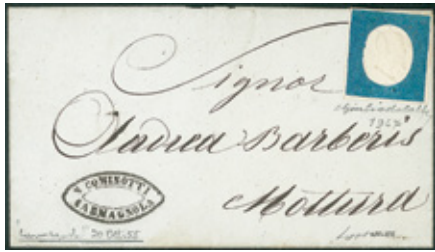 Signor
Andrea Barberis
Mottura
V. COMINOTTI
CARMAGNOLA
20 Ott. 55